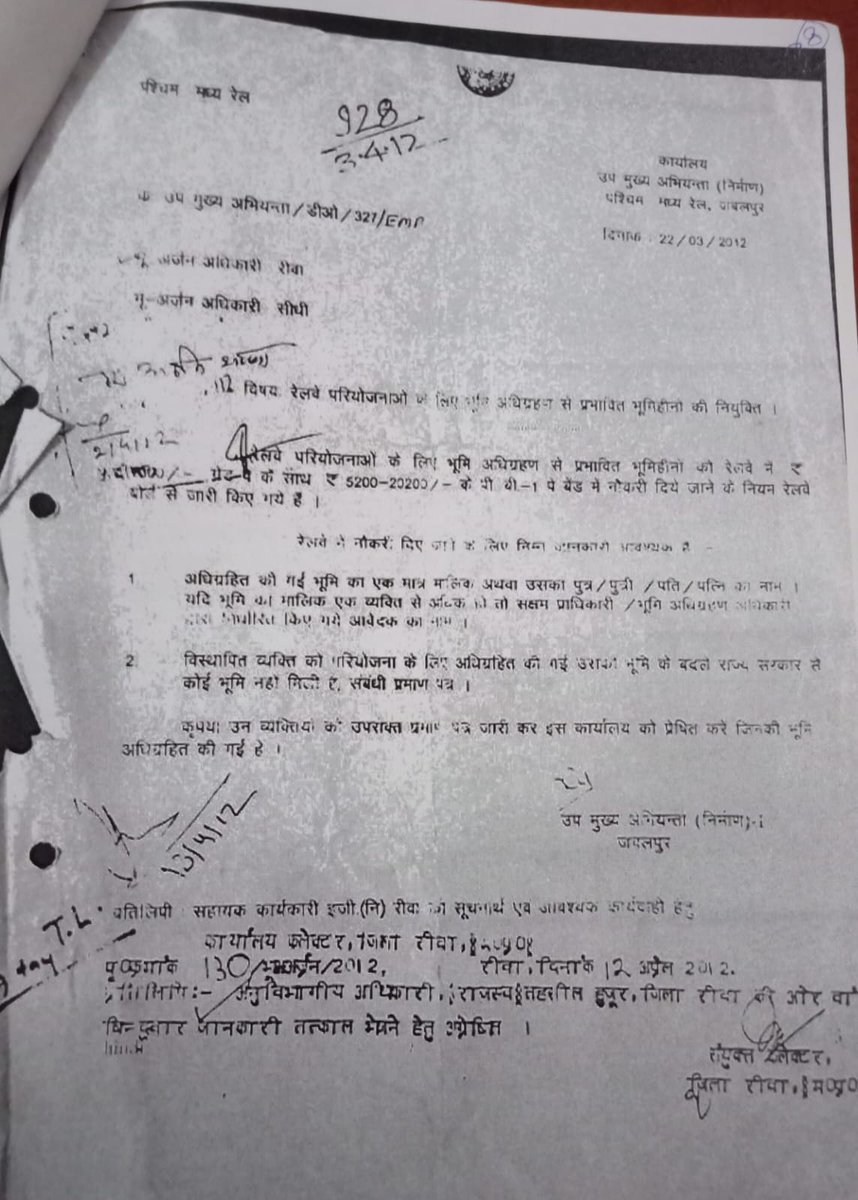 68
पश्चिम मध्य रेल
928
3.4.12
कार्यालय
उप मुख्य अभियन्ता (निर्माण)
पश्चिम मध्य रेल, जबलपुर
क उप मुख्य अभियन्ता/डीओ/327/EMP
दिनांक : 22/03/2012
भू अर्जन अधिकारी रीवा
भू-अर्जन अधिकारी सीधी
विषय रेलवे परियोजनाओं के लिए भूमि अधिग्रहण से प्रभावित भूमिहीनों की नियुक्ति ।
2/4/12
रेलवे परियोजनाओं के लिए भूमि अधिग्रहण से प्रभावित भूमिहीनों को रेलवे में ₹
ग्रेड पे के साथ ₹ 5200-20200/- के पी बी-1 पे बेंड में नौकरी दिये जाने के नियम रेलवे
बोर्ड से जारी किए गये है ।
रेलवे में नौकरी दिए जाने के लिए निम्न जानकारी आवश्यक है -
1. अधिग्रहित की गई भूमि का एक मात्र मालिक अथवा उसका पुत्र/पुत्री /पति/पत्नि का नाम ।
यदि भूमि का मालिक एक व्यक्ति से अधिक हो तो सक्षम प्राधिकारी /भूमि अधिग्रहण अधिकारी
द्वारा निर्धारित किए गये आवेदक का नाम ।
2. विस्थापित व्यक्ति को परियोजना के लिए अधिग्रहित की गई उसकी भूमि के बदले राज्य सरकार से
कोई भूमि नही मिली है, संबंधी प्रमाण पत्र ।
कृपया उन व्यक्तियों को उपरोक्त प्रमाण पत्र जारी कर इस कार्यालय को प्रेषित करें जिनकी भूमि
अधिग्रहित की गई है ।
उप मुख्य अभियन्ता (निर्माण)-I
जबलपुर
13/4/12
T.L.
day
प्रतिलिपी : सहायक कार्यकारी इंजी.(नि) रीवा को सूचनार्थ एवं आवश्यक कार्यवाही हेतु
कार्यालय कलेक्टर, जिला रीवा, म०प्र०
पृ०क्रमांक 130/भूअर्जन/2012, रीवा, दिनांक 12 अप्रेल 2012.
प्रतिलिपि:- अनुविभागीय अधिकारी, राजस्व तहसील हुजूर, जिला रीवा की ओर
बिन्दुवार जानकारी तत्काल भेजने हेतु अग्रेषित ।
संयुक्त कलेक्टर,
जिला रीवा, म०प्र०